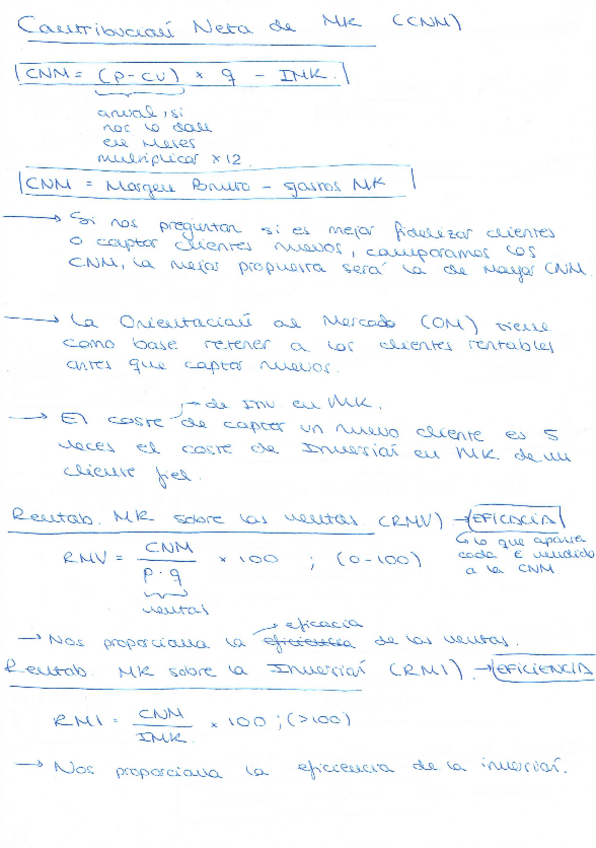 Contribución Neta de MK (CNM)
CNM = (p - cv) × q - IMK.
anual, si
nos lo dan
en meses
multiplicar × 12
CNM = Margen Bruto - gastos MK
→ Si nos preguntan si es mejor fidelizar clientes
o captar clientes nuevos, comparamos los
CNM, la mejor propuesta será la de mayor CNM.
→ La Orientación al Mercado (OM) tiene
como base retener a los clientes rentables
antes que captar nuevos.
→ de Inv. en MK.
→ El coste de captar un nuevo cliente es 5
veces el coste de Inversión en MK de un
cliente fiel.
Rentab. MK sobre las ventas (RMV) → EFICACIA
↳ lo que aporta
cada € vendido
a la CNM.
RMV = CNM / p · q × 100 ; (0-100)
ventas
→ eficacia
→ Nos proporciona la eficiencia de las ventas.
Rentab. MK sobre la Inversión (RMI). → EFICIENCIA
RMI = CNM / IMK. × 100 ; (>100)
→ Nos proporciona la eficiencia de la inversión.